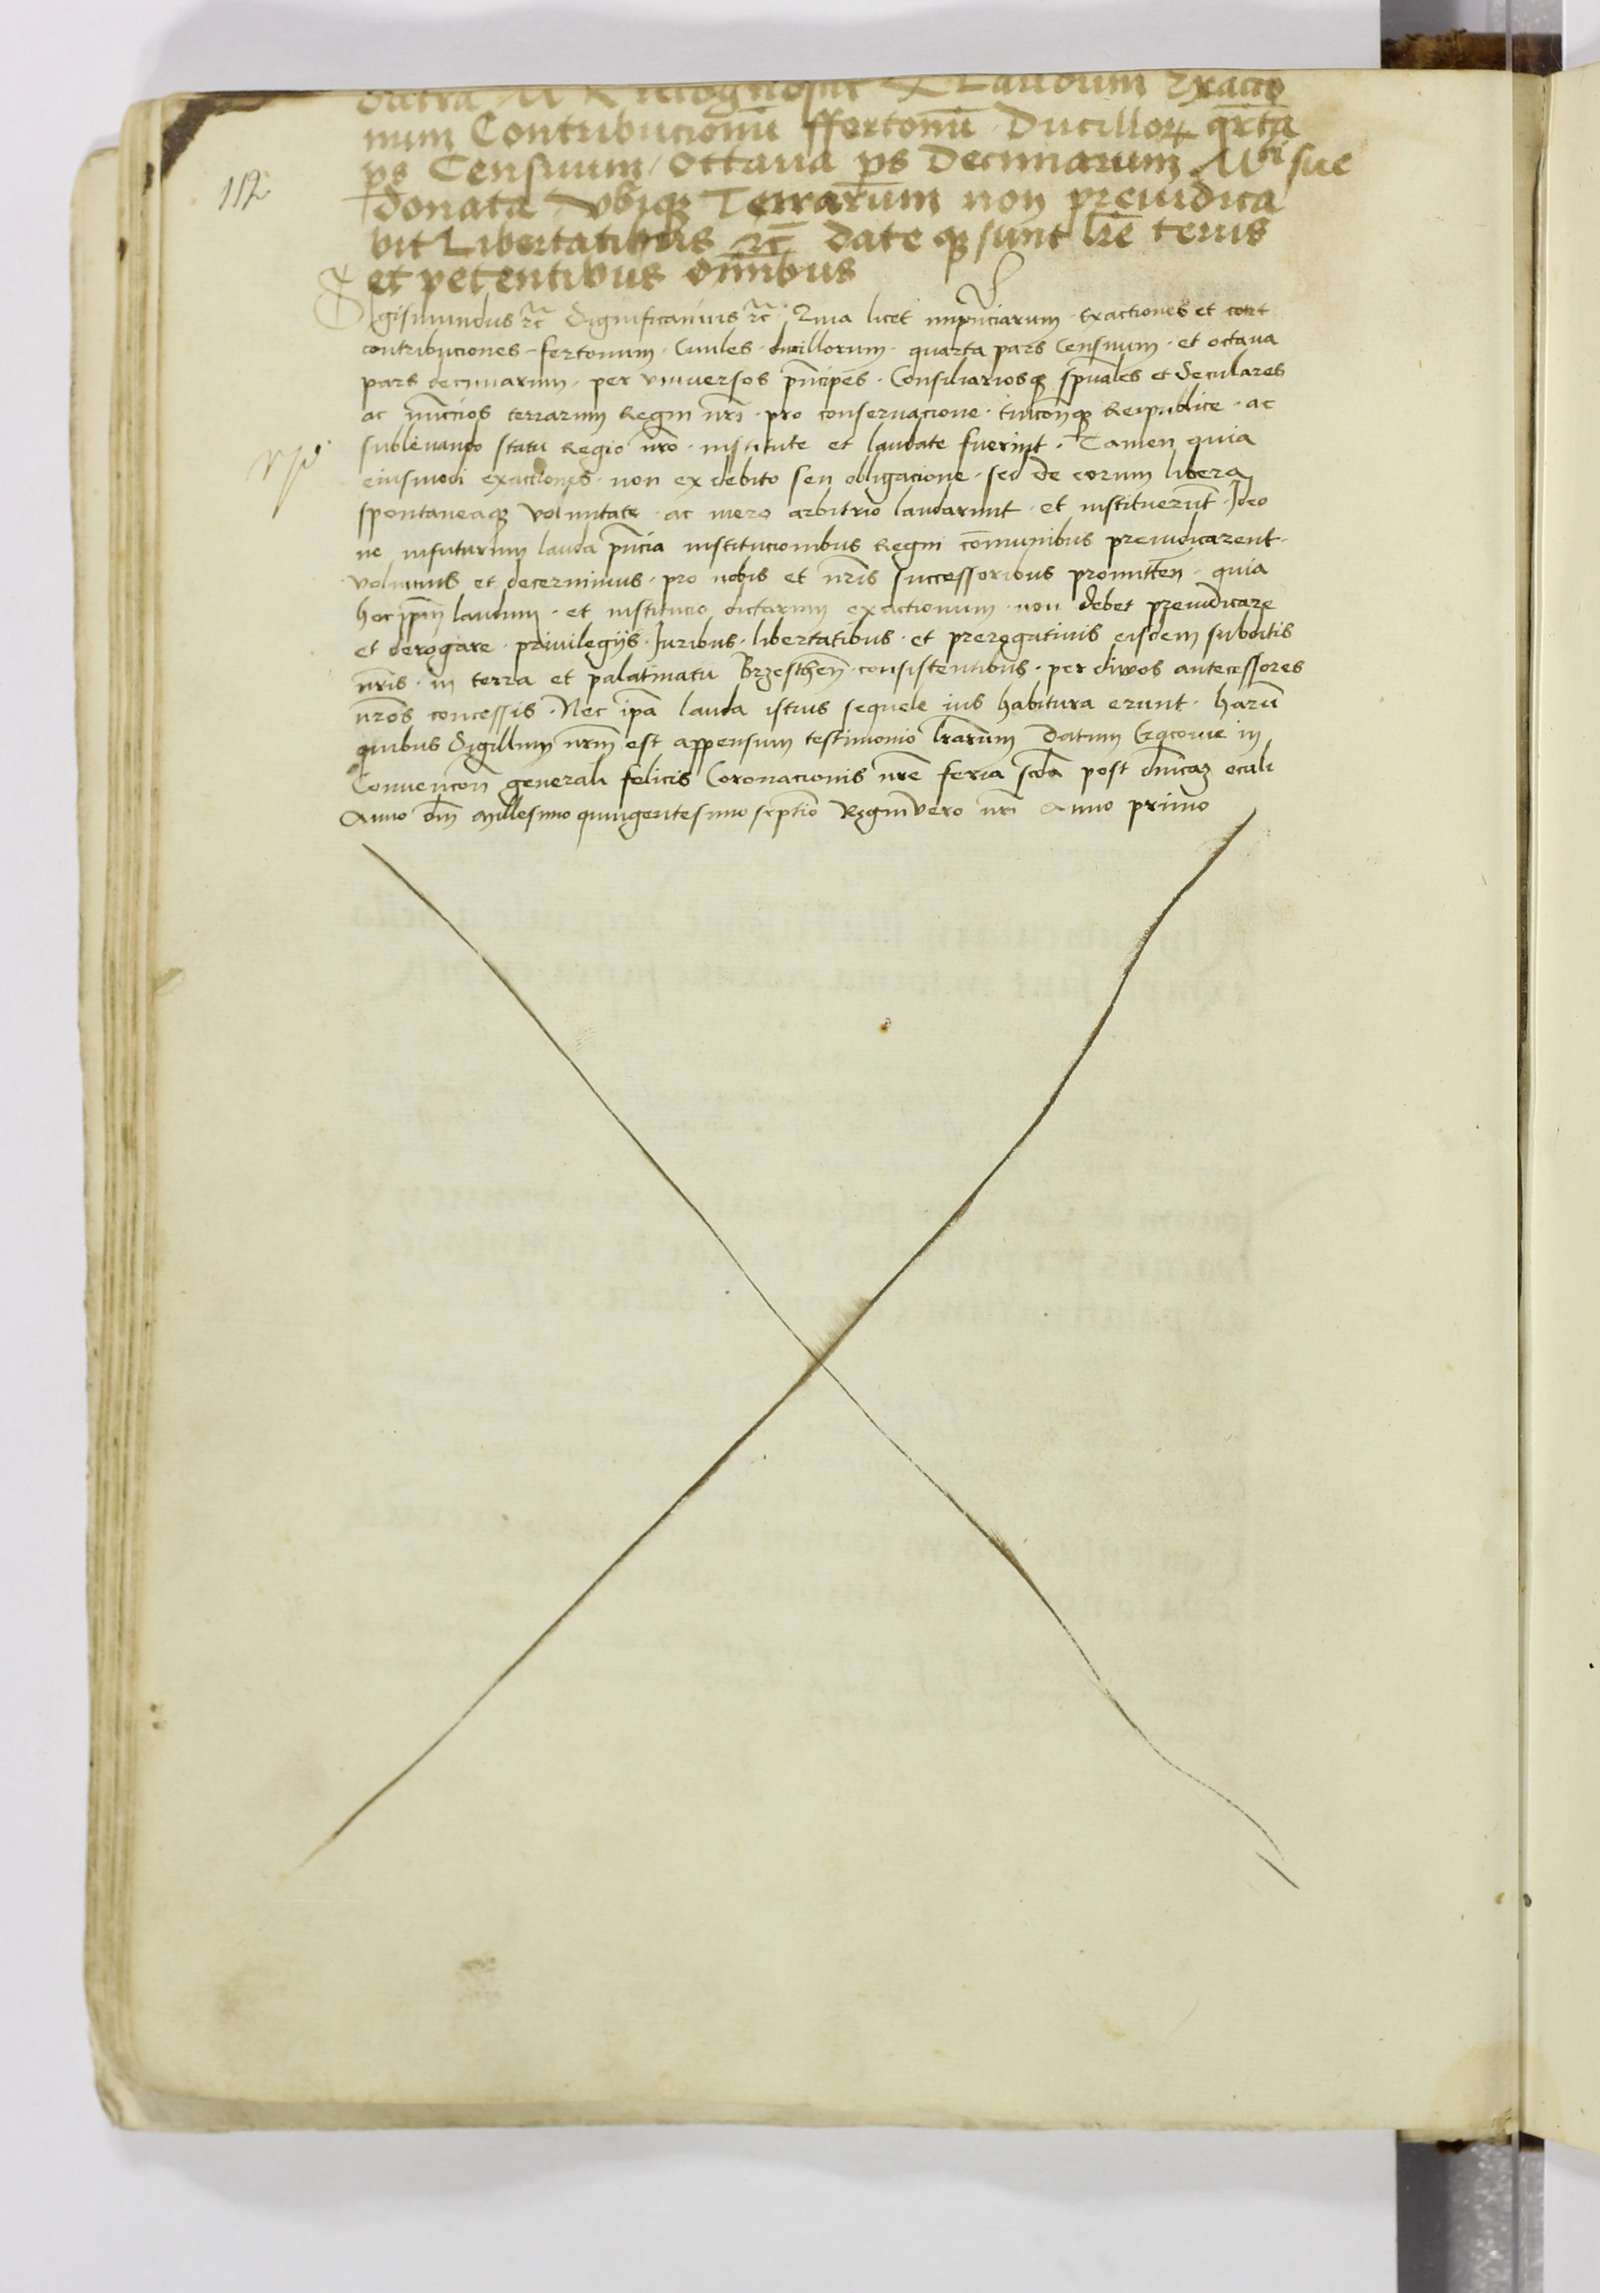 112
datra M R recognoscit Laudum Exactio
num Contribucionū ffertonū Ducillorꝝ qrta
ps Censuum, Octaua ps Decimarum Mti sue
donata vbiqꝫ Terrarum non preiudica
bit Libertatibus ꝛc̄ date qꝫ sunt lre̅ terris
et petentibus om̄ibus
Sigismundus ꝛc̄ Significamus ꝛc̄ Quia licet imprn̄ciarum · exactiones et cont
contribuciones · fertonum · Ciuiles · ducillorum · quarta pars Censuum · et octaua
pars decimarum · per vniuersos prn̄cipes · Consiliariosqꝫ sp̄uales et Seculares
ac nūccios terrarum Regni nr̄i · pro conseruacione · tuicōnqꝫ Reipublice · ac
subleuando statu Regio nr̄o · institute et laudate fuerint · Tamen quia
eiusmodi exactiones · non ex debito seu obligacione · sed de eorum libera
spontaneaqꝫ voluntate · ac mero arbitrio laudarunt · et instituerūt · Ideo
ne infuturum lauda prn̄cia institucionibus Regni cōmunibus preiudicarent ·
volumus et decernimus · pro nobis et nr̄is successoribus promitten̄ · quia
hoc ip̄m laudum · et institucio dictarum exactionum · non debet preiudicare
et derogare · priuilegijs · Juribus · libertatibus · et prerogatiuis eisdem subditis
nr̄is · in terra et palatinatu Brzesthen̄ · consistentibus · per diuos antecessores
nr̄os concessis · Nec ip̄a lauda istius sequele ius habitura erunt · harū
quibus Sigillum nr̄m est appensum testimonio lr̄arum Datum Cracouie in
Conuencōn generali felicis Coronacionis nr̄e feria scd̄a post dn̄icaꝫ oculi
Anno dn̄i Millesimo quingentesimo septīo Regni vero nr̄i Anno primo